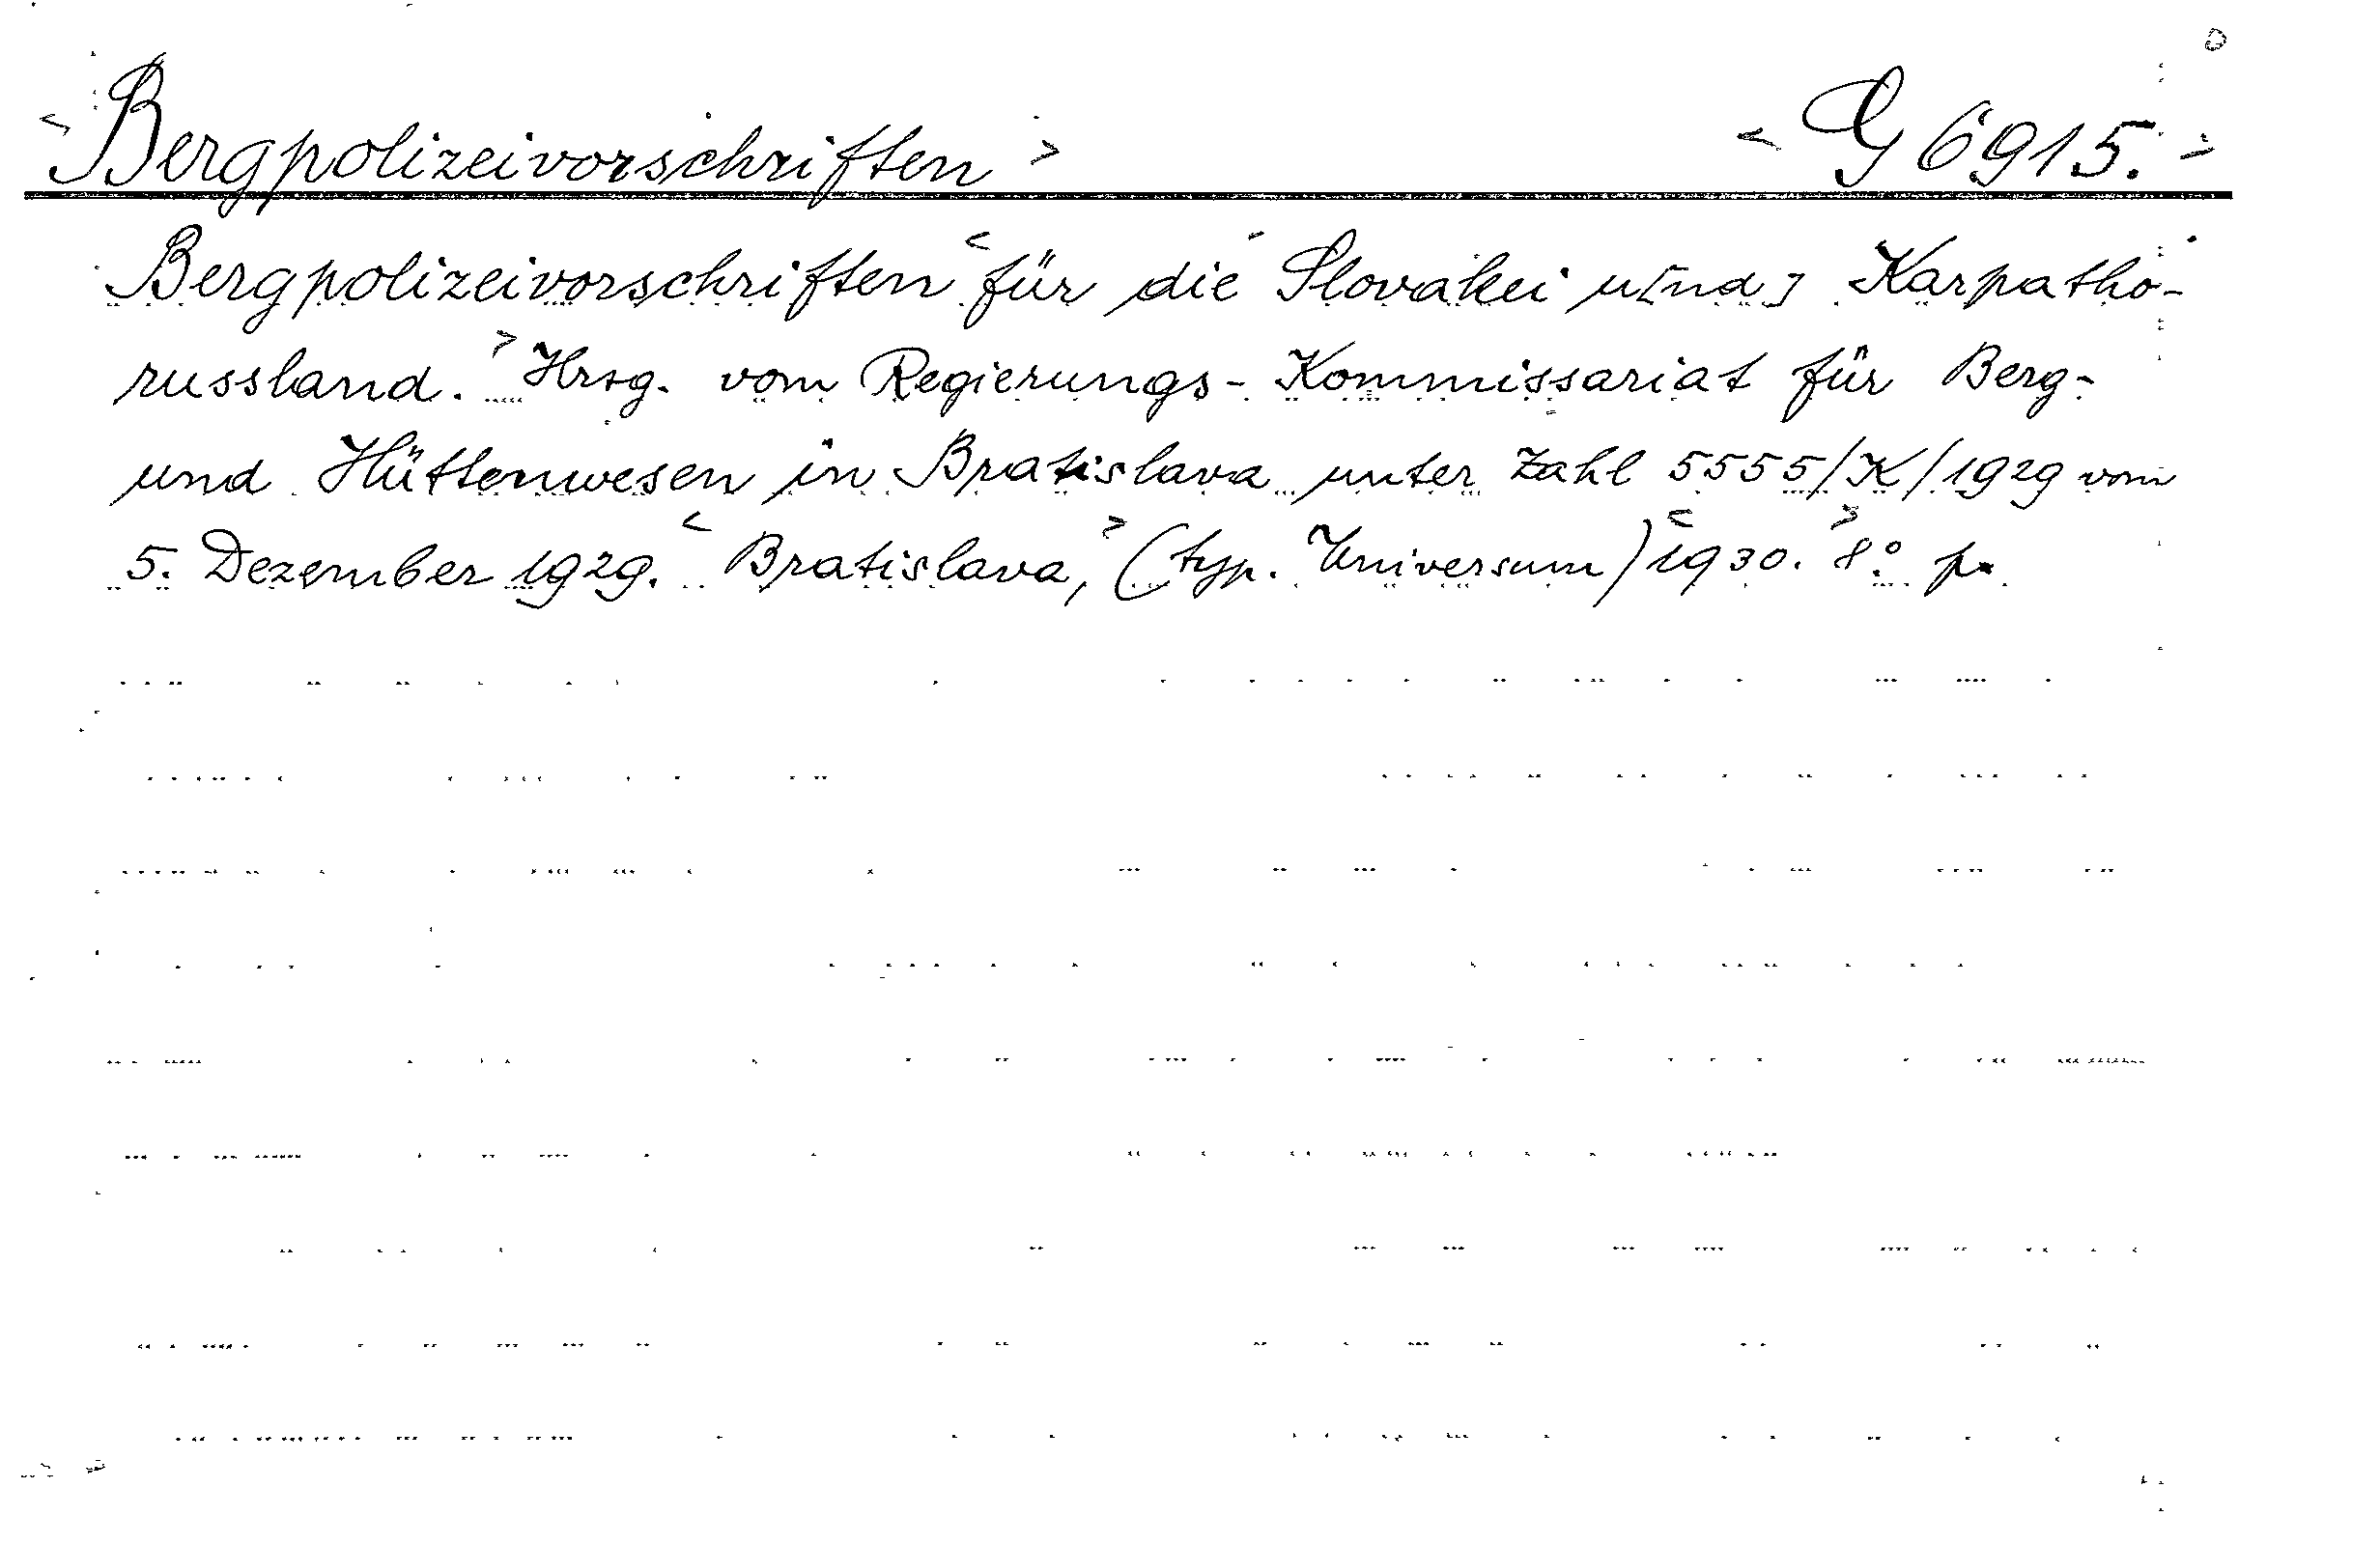 <Bergpolizeivorschriften> <G 6915.>
Bergpolizeivorschriften <für die Slovakei u[nd] Karpatho-
russland.> Hrsg. vom Regierungs-Kommissariat für Berg-
und Hüttenwesen in Bratislava unter Zahl 5555/K/1929 vom
5. Dezember 1929. <Bratislava,> (typ. Universum) <1930.> 8° p.